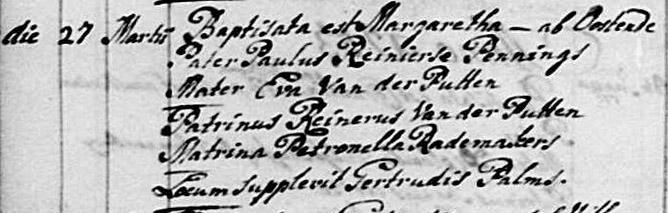 die 27 Martis Baptisata est Margaretha – ab Oostende
Pater Paulus Reinierse Pennings
Mater Eva Van der Putten
Patrinus Reinerus Van der Putten
Matrina Petronella Rademakers
Locum supplevit Gertrudis Palms.